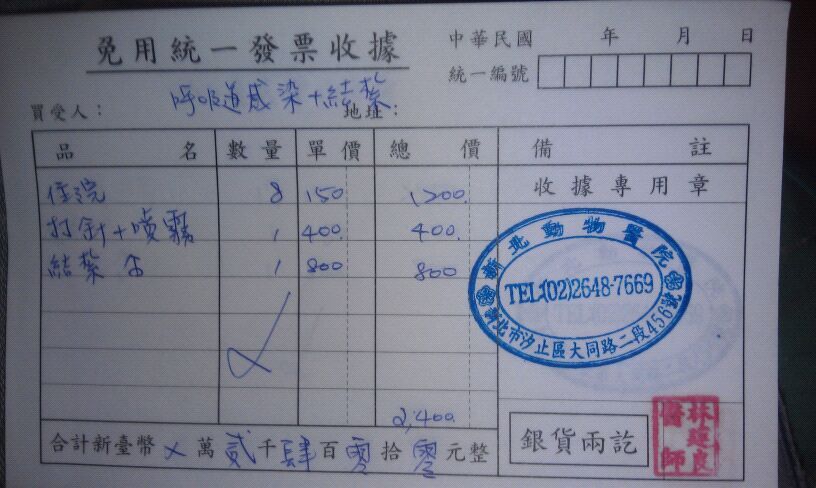 免用統一發票收據
中華民國 年 月 日
統一編號
呼吸道感染+結紮
買受人: 地址:
品名 數量 單價 總價 備註
住院 8 150 1200.
收據專用章
打針+噴霧 1 400. 400.
結紮 1 800 800
新北動物醫院
TEL:(02)2648-7669
新北市汐止區大同路二段456號
2,400.
合計新臺幣 x 萬 貳 千 肆 百 零 拾 零 元整
銀貨兩訖
林建良
醫師